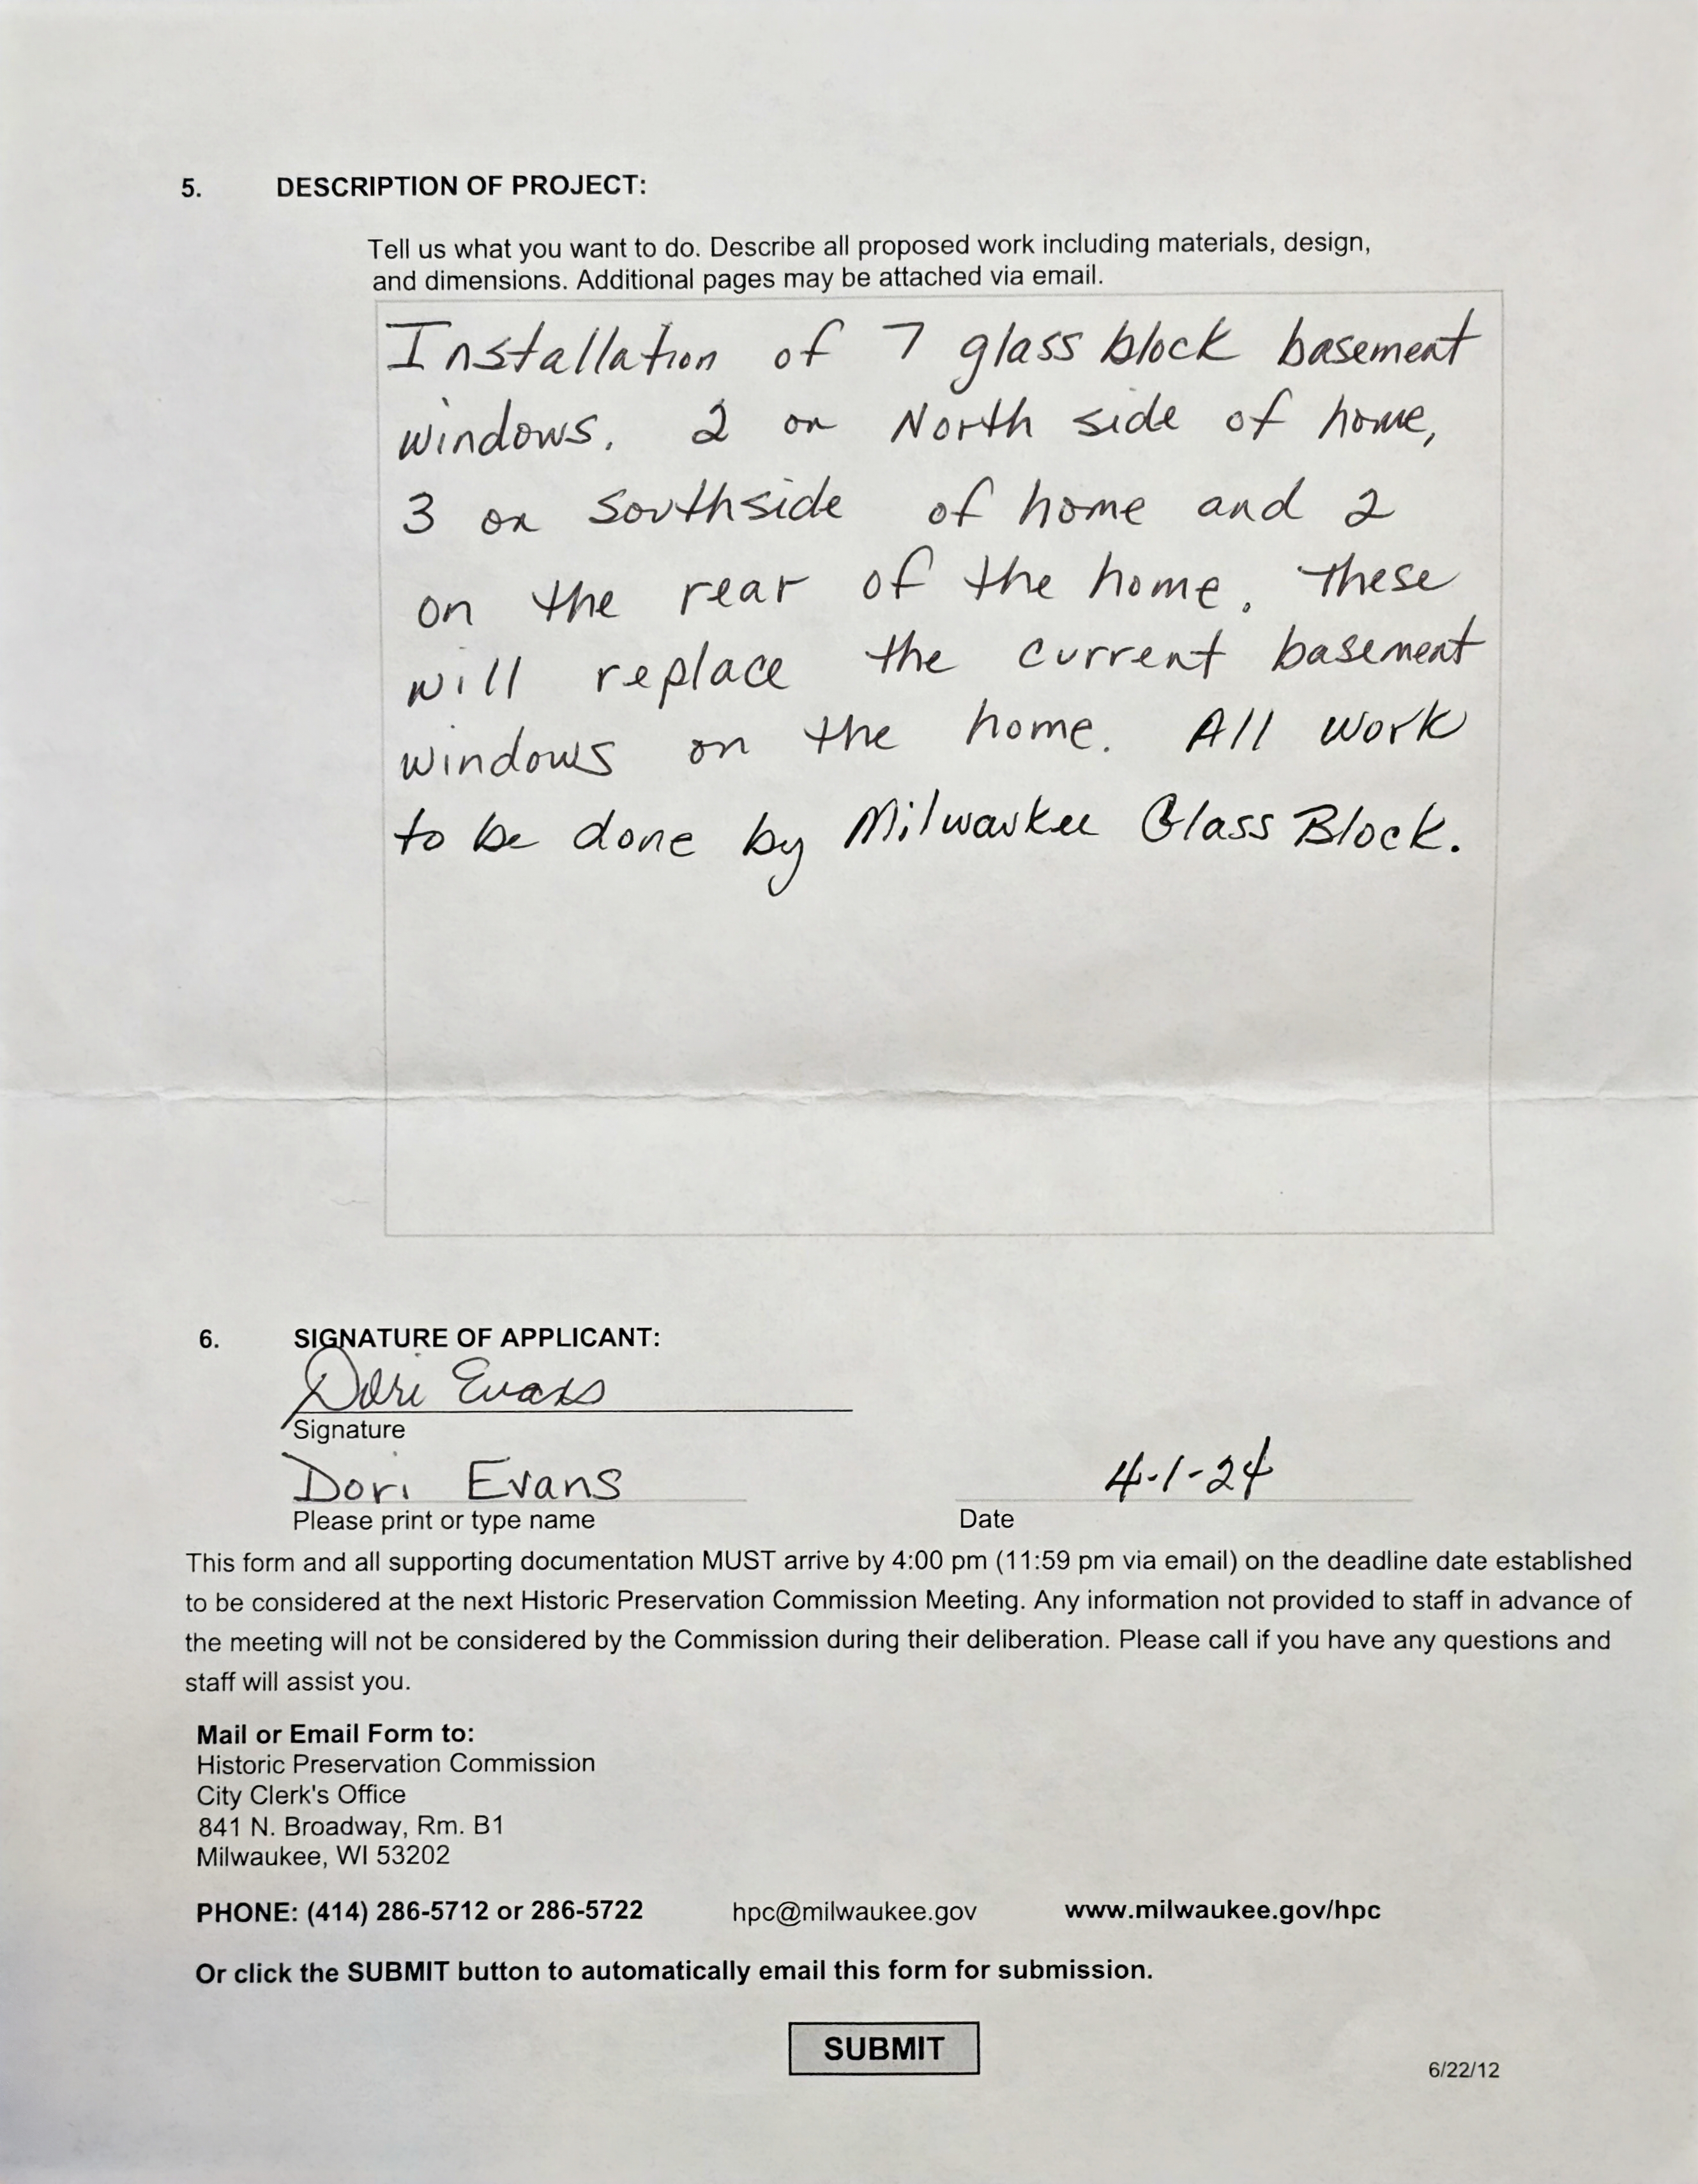 5. DESCRIPTION OF PROJECT:
Tell us what you want to do. Describe all proposed work including materials, design,
and dimensions. Additional pages may be attached via email.
Installation of 7 glass block basement
windows. 2 on North side of home,
3 on southside of home and 2
on the rear of the home. These
will replace the current basement
windows on the home. All work
to be done by Milwaukee Glass Block.
6. SIGNATURE OF APPLICANT:
Dori Evans
Signature
Dori Evans 4-1-24
Please print or type name Date
This form and all supporting documentation MUST arrive by 4:00 pm (11:59 pm via email) on the deadline date established
to be considered at the next Historic Preservation Commission Meeting. Any information not provided to staff in advance of
the meeting will not be considered by the Commission during their deliberation. Please call if you have any questions and
staff will assist you.
Mail or Email Form to:
Historic Preservation Commission
City Clerk's Office
841 N. Broadway, Rm. B1
Milwaukee, WI 53202
PHONE: (414) 286-5712 or 286-5722 hpc@milwaukee.gov www.milwaukee.gov/hpc
Or click the SUBMIT button to automatically email this form for submission.
SUBMIT
6/22/12